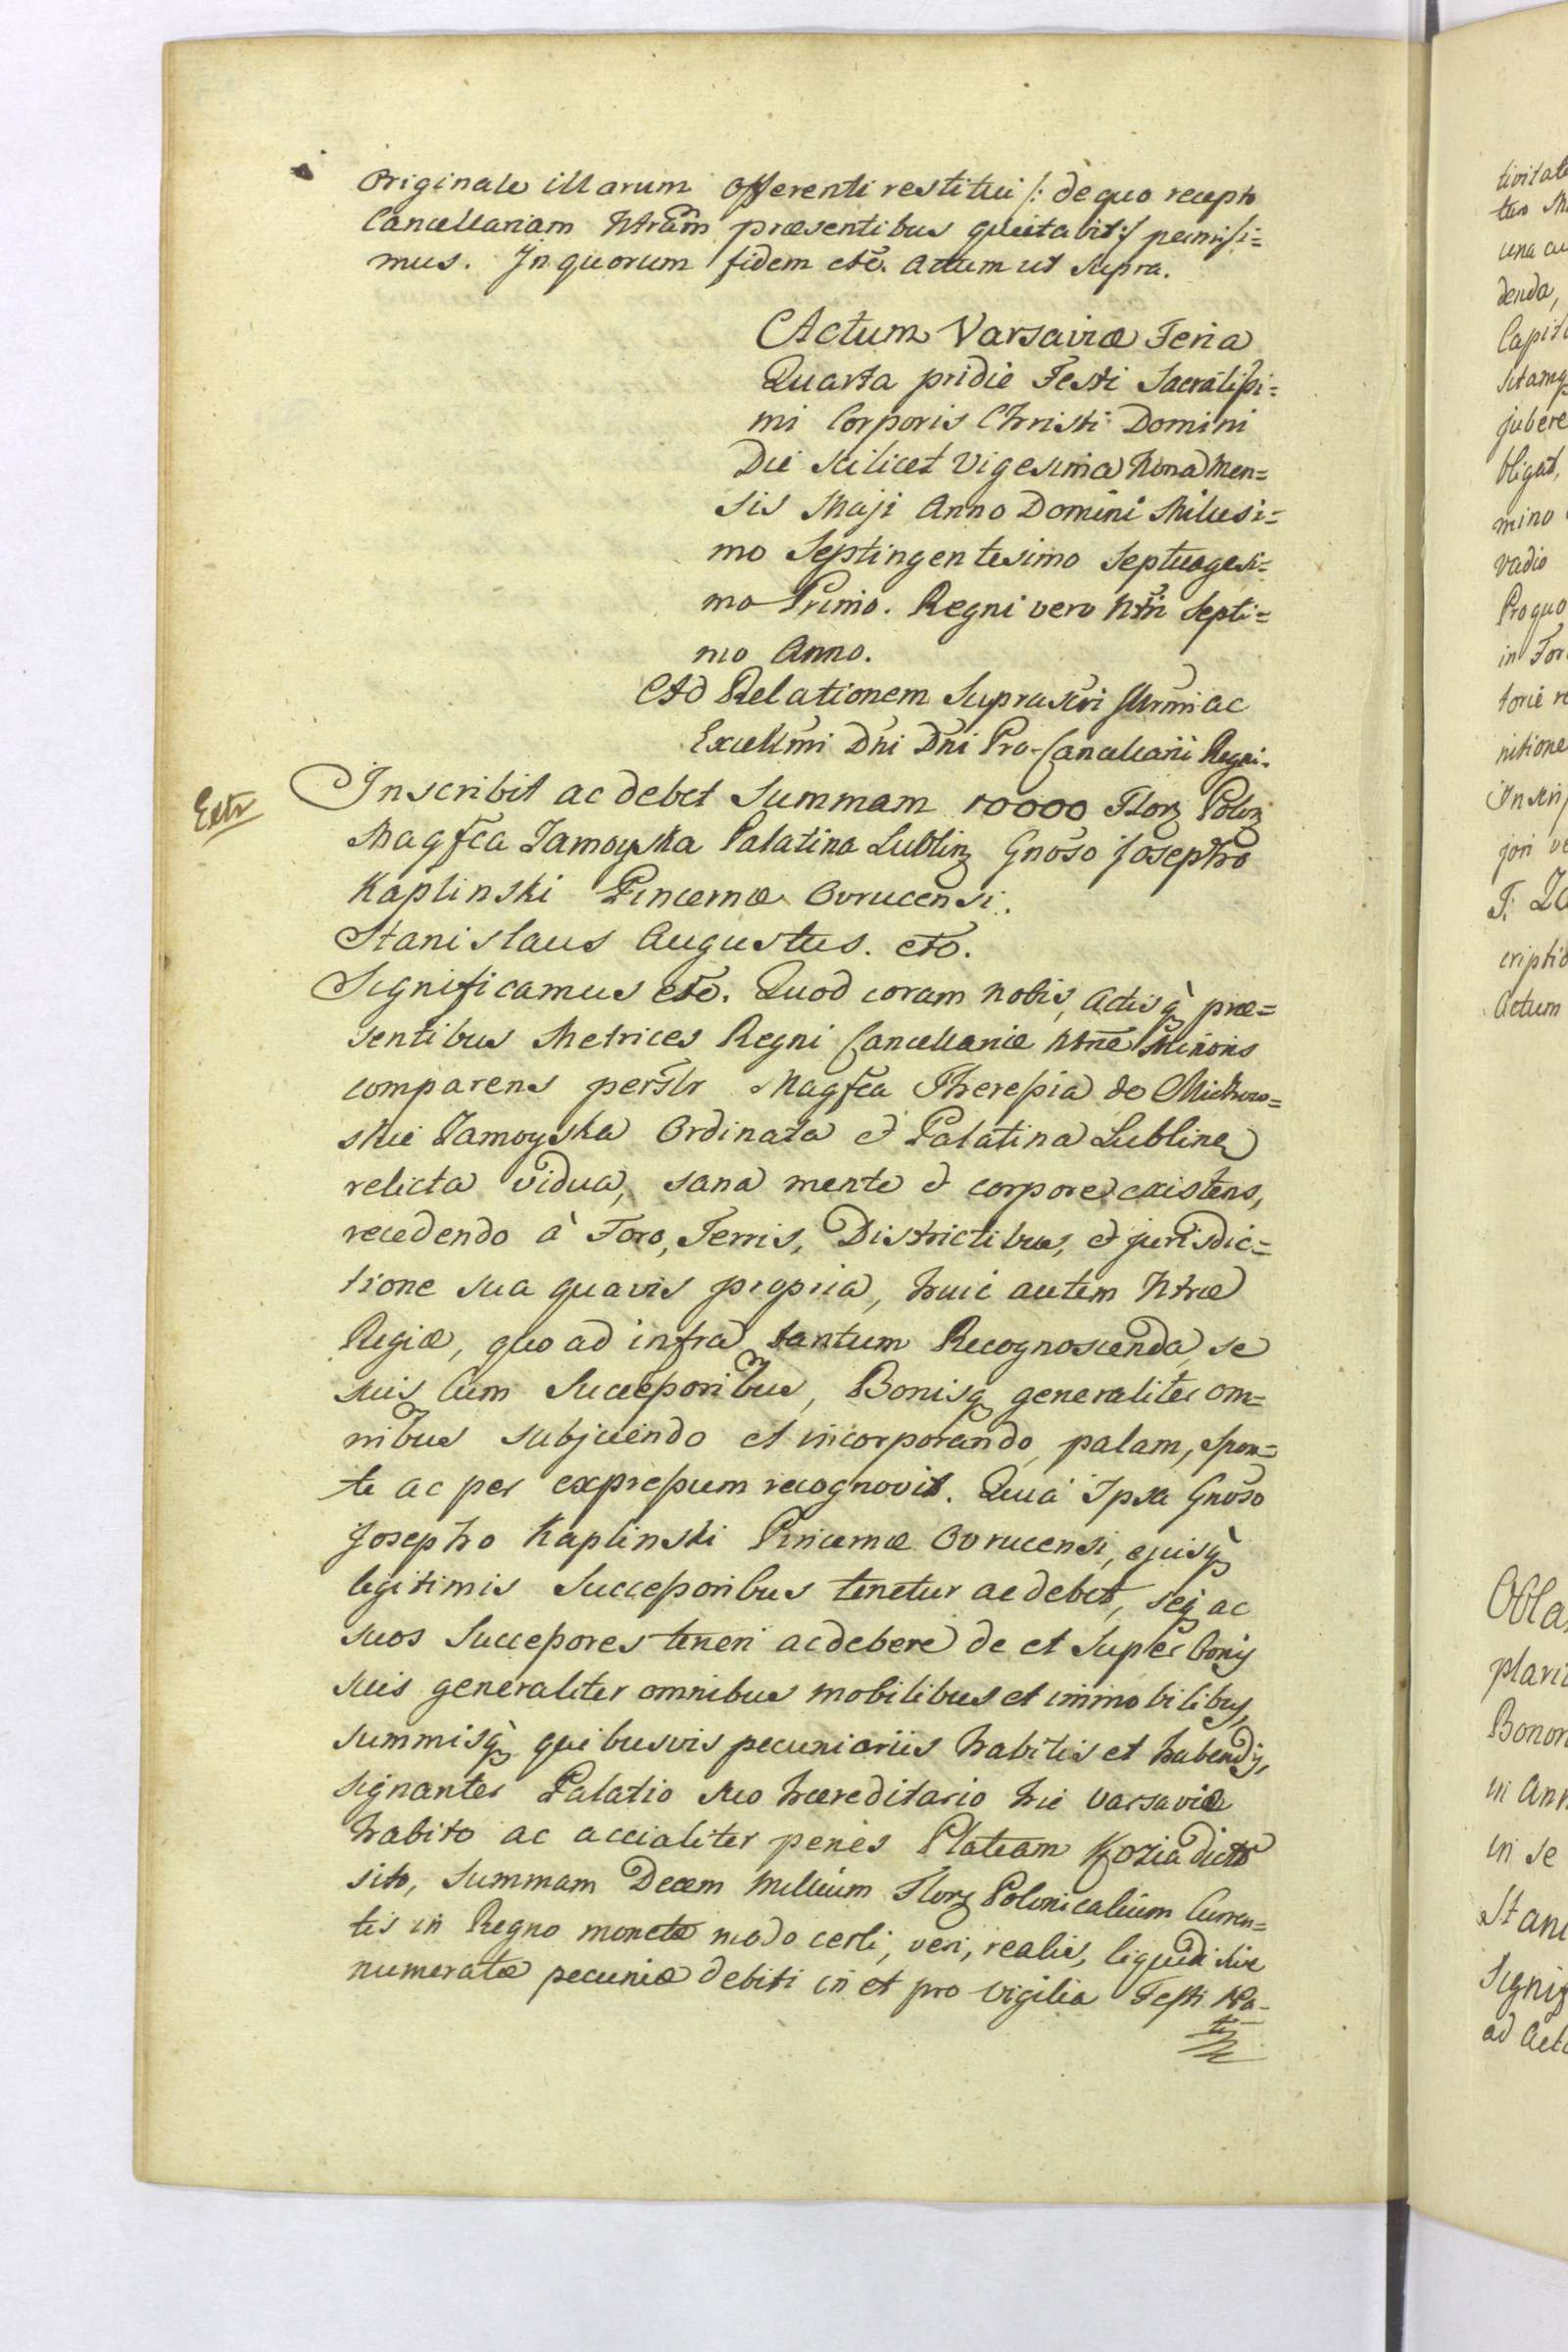 Originale illarum offerenti restitui /: de quo recepto
Cancellariam Ntram præsentibus quietabit :/ permisi=
mus. In quorum fidem etc. Actum ut supra.
Actum Varsaviæ Feria
Quarta pridie Festi Sacratissi=
mi Corporis Christi Domini
Die scilicet Vigesima Nona Men=
sis Maji Anno Domini Millesi=
mo Septingentesimo Septuagesi=
mo Primo. Regni vero Ntri Septi=
mo Anno.
Ad Relationem Suprascri Illrmi ac
Excellmi Dni Dni Pro-Cancellarii Regni.
Extr
Inscribit ac debet Summam 10000 Flor Polon
Magfca Zamoyska Palatina Lublin Gnoso Josepho
Kaplinski Pincernæ Ovrucensi.
Stanislaus Augustus. etc.
Significamus etc. Quod coram nobis, Actisq præ=
sentibus Metrices Regni Cancellariæ Ntræ Minoris
comparens persltr Magfca Theressia de Michow=
skie Zamoyska Ordinata et Palatina Lublinen
relicta vidua, sana mente et corpore existens,
recedendo à Foro, Terris, Districtibus, et jurisdic=
tione sua quavis propria, huic autem Ntræ
Regiæ, quo ad infra tantum Recognoscenda, se
suis cum Successoribus, Bonisq generaliter om=
nibus subjiciendo et incorporando, palam, spon=
te ac per expressum recognovit. Quia Ipsa Gnoso
Josepho Kaplinski Pincernæ Ovrucensi, ejusq
legitimis Successoribus tenetur ac debet, seq ac
suos Successores teneri ac debere de et super bonis
suis generaliter omnibus mobilibus et immobilibus,
summisq quibusvis pecuniariis habitis et habendis,
signanter Palatio suo hæreditario hic Varsaviæ
habito ac accialiter penes Plateam Kozia dicta
sito, Summam Decem Millium Flor Polonicalium Curren=
tis in Regno monetæ modo certi, veri, realis, liquidi sive
numeratæ pecuniæ debiti in et pro vigilia Festi Na-
ti
tivitate
una cu
denda,
Capit
jubere
bligat,
mino
vadio
Pro quo
in For
torie re
nitione
Inscrip
jori ve
criptio
Actum
Obla
plari
Bonor
in Ann
in se
Stani
Signif
ad Acta